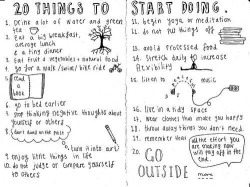 20 THINGS TO START DOING.
1. Drink lots of water and green tea
2. Eat a big breakfast, average lunch & tiny dinner
3. Eat fruits + vegetables + natural foods
4. go for a walk/swim/bike ride
5. read a book
6. go to bed earlier
7. stop thinking negative thoughts about yourself or others
8. don't dwell on the past
turn it into art!
9. enjoy little things in life
10. do not judge or compare yourself to others
11. begin yoga or meditation
12. do not put things off
13. avoid processed food
14. stretch daily to increase flexibility
15. listen to music
16. live in a tidy space
17. wear clothes that make you happy
18. throw away things you don't need.
19. remember that
all the effort you are making now will pay off in the end.
20. GO OUTSIDE more